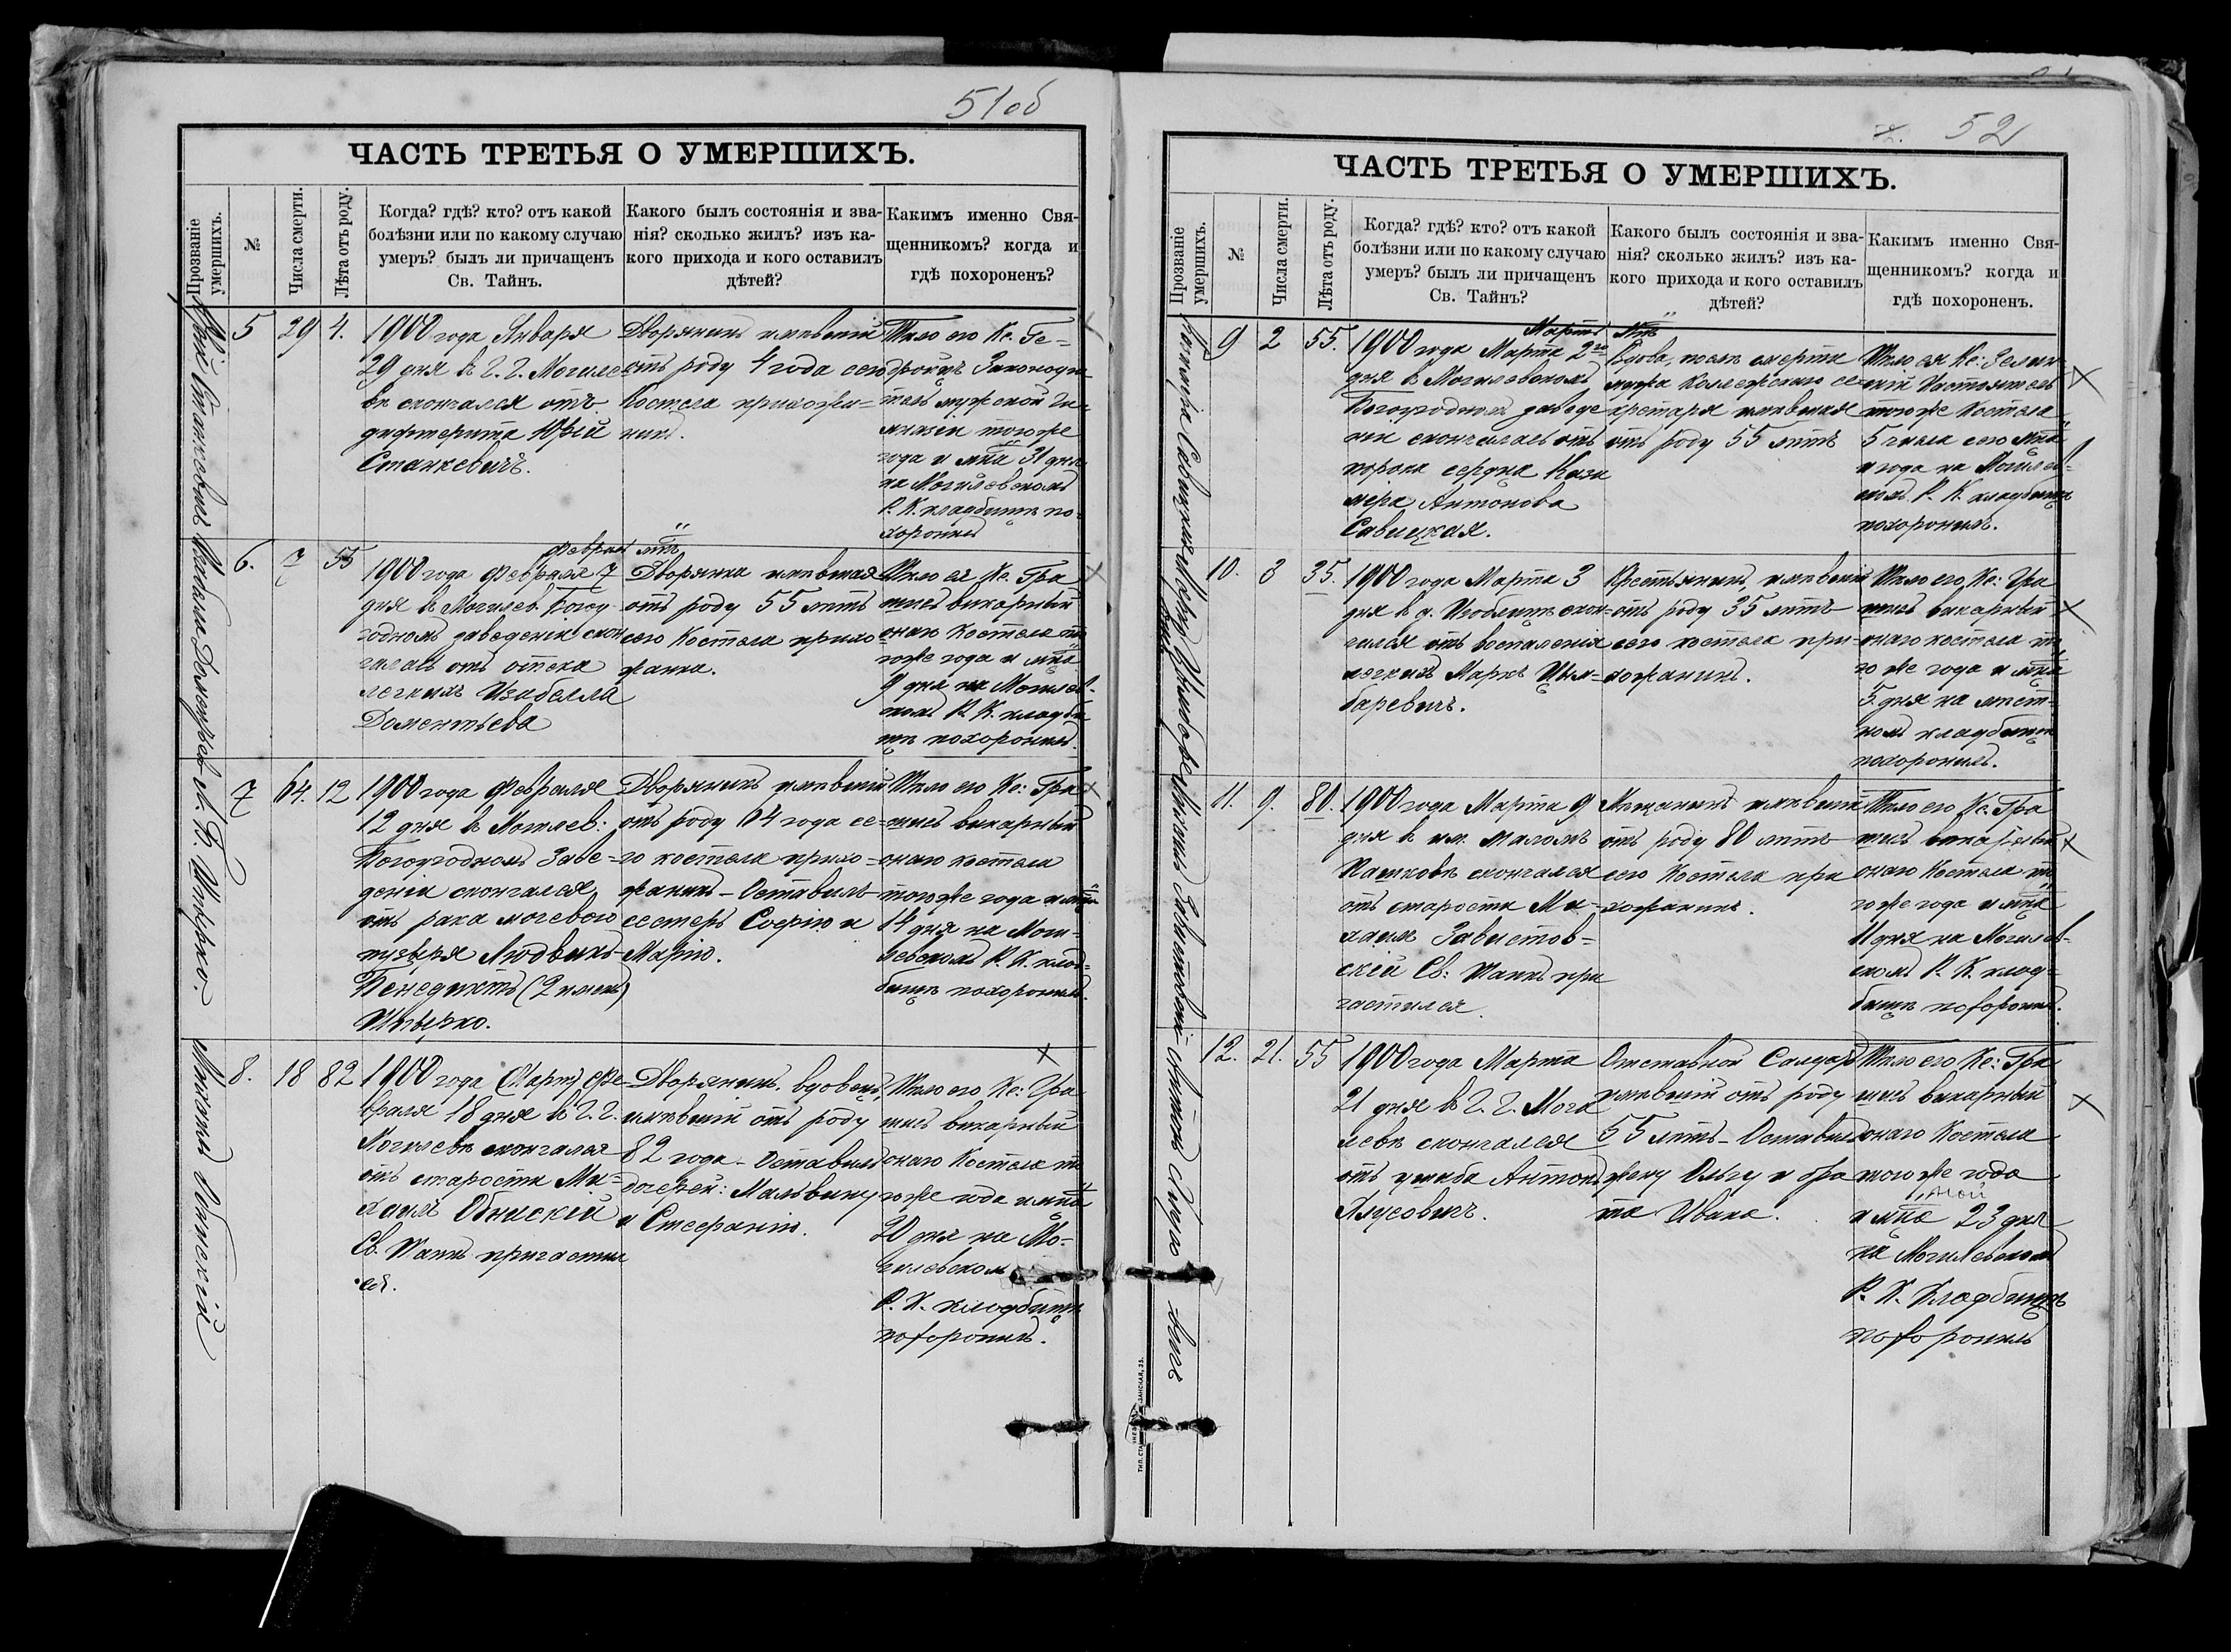 51об
ЧАСТЬ ТРЕТЬЯ О УМЕРШИХЪ.
Прозваніе умершихъ.
№
Числа смерти.
Лѣта отъ роду.
Когда? гдѣ? кто? отъ какой
болѣзни или по какому случаю
умеръ? былъ ли причащенъ
Св. Тайнъ.
Какого былъ состоянія и зва-
нія? сколько жилъ? изъ ка-
кого прихода и кого оставилъ
дѣтей?
Какимъ именно Свя-
щенникомъ? когда и
гдѣ похороненъ?
Юрій Станкевичъ
5
29
4.
1900 года Января
29 дня въ г. г. Могиле
вѣ скончался отъ
дифтерита Юрій
Станкевичъ.
Дворянинъ имѣвшій
отъ роду 4 года сего
Костела прихожа=
нинъ.
Тѣло его Кс. Ге=
Законоучи=
тель мужской Ги=
мназіи того же
года и мца 31 дня
на Могилевскомъ
Р. К. кладбищѣ по=
хоронилъ
Февраль мцъ
6.
7
55
1900 года Февраля 7
дня въ Могилев. Богоу
годномъ заведеніи скон
чалась отъ отека
легкихъ Изабелла
Доментьева
Дворянка имѣвшая
отъ роду 55 лѣтъ
сего Костела прихо
жанка.
Тѣло ея Кс. Гра
викарный
онаго Костела то
гоже года и мца
9 дня на Могилев=
скомъ Р. К. кладби
щѣ похоронилъ.
7
64.
12
1900 года Февраля
12 дня въ Могилев:
Богоугодномъ Заве=
деніи скончался
отъ рака мочевого
пузыря Людвикъ-
Бенедиктъ (2 именъ)
Дворянинъ имѣвшій
отъ роду 64 года се=
го костела прихо=
жанинъ - Оставилъ
сестеръ Софію и
Марію.
Тѣло его Кс: Гра
викарный
онаго костела
того же года и мца
14 дня на Моги=
левскомъ Р. К. клад=
бищѣ похоронилъ.
Михаилъ Обнискій
8.
18
82
1900 года (Мартъ) Фе=
враля 18 дня въ г. г.
Могилевѣ скончался
отъ старости Ми=
хаилъ Обнискій
Св. Таинъ причастил
ся.
Дворянинъ, вдовецъ,
имѣвшій отъ роду
82 года - Оставилъ
дочерей: Мальвину
и Стефанію.
Тѣло его Кс: Гра
викарный
онаго Костела то
гоже года и мца
20 дня на Мо=
гилевском
Р. К. кладбищѣ
похоронилъ.
52
ЧАСТЬ ТРЕТЬЯ О УМЕРШИХЪ.
Прозваніе умершихъ.
№
Числа смерти.
Лѣта отъ роду.
Когда? гдѣ? кто? отъ какой
болѣзни или по какому случаю
умеръ? былъ ли причащенъ
Св. Тайнъ?
Какого былъ состоянія и зва-
нія? сколько жилъ? изъ ка-
кого прихода и кого оставилъ
дѣтей?
Какимъ именно Свя-
щенникомъ? когда и
гдѣ похороненъ.
Мартъ мцъ
9
2
55.
1900 года Марта 2го
дня въ Могилевскомъ
Богоугодномъ заведе
ніи скончалась отъ
порока сердца Кази
мера Антонова
Савицкая.
Вдова, послѣ смерти
мужа Коллежскаго се=
кретаря имѣвшая
отъ роду 55 лѣтъ
Тѣло ея Кс:
Настоятель
того же Костела
5 числа сего мца
и года на Могилев=
скомъ Р. К. кладбищѣ
похоронилъ.
10.
3
35.
1900 года Марта 3
дня въ д. скон=
чался отъ воспаленія
легкихъ Маркъ Цим=
баревичъ.
Крестьянинъ имѣвшій
отъ роду 35 лѣтъ
сего костела при=
хожанинъ.
Тѣло его Кс: Гра
викарный
онаго костела то
го же года и мца
5 дня на мѣст=
номъ кладбищѣ
похоронилъ.
11.
9.
80.
1900 года Марта 9
дня въ им. Маломъ
Пашковѣ скончался
отъ старости Ми=
хаилъ Завистов=
скій Св: Таинъ при
частился.
Мѣщанинъ имѣвшій
отъ роду 80 лѣтъ
сего Костела при
хожанинъ.
Тѣло его Кс. Гра
викарный
онаго Костела то
гоже года и мца
11 дня на Могилев=
скомъ Р. К. клад=
бищѣ похоронилъ.
12.
21.
55
1900 года Марта
21 дня въ г. г. Моги
левѣ скончался
отъ ушиба Антонъ
Отставной Солдатъ
имѣвшій отъ роду
55 лѣтъ - Оставилъ
жену Ольгу и бра
та Ивана.
Тѣло его Кс: Гра
викарный
онаго Костела
того же года
и мца 23 дня
на Могилевскомъ
Р. К. Кладбищѣ
похоронилъ